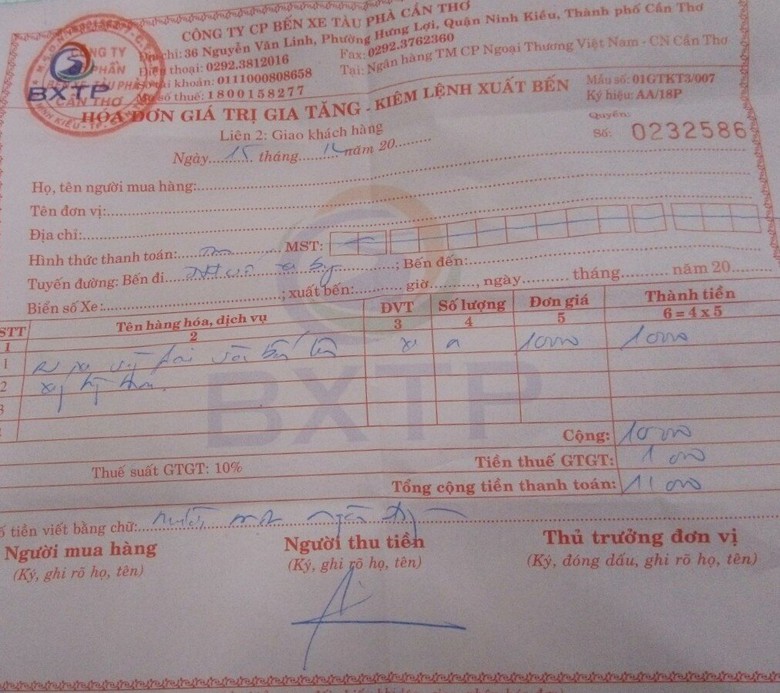 CÔNG TY CP BẾN XE TÀU PHÀ CẦN THƠ
Địa chỉ: 36 Nguyễn Văn Linh, Phường Hưng Lợi, Quận Ninh Kiều, Thành phố Cần Thơ
Điện thoại: 0292.3812016 Fax: 0292.3762360
Tài khoản: 0111000808658 Tại: Ngân hàng TM CP Ngoại Thương Việt Nam - CN Cần Thơ
Mã số thuế: 1800158277
CÔNG TY
CỔ PHẦN
BẾN XE TÀU PHÀ
CẦN THƠ
BXTP
HÓA ĐƠN GIÁ TRỊ GIA TĂNG - KIÊM LỆNH XUẤT BẾN
Mẫu số: 01GTKT3/007
Ký hiệu: AA/18P
Liên 2: Giao khách hàng
Quyển:
Số: 0232586
Ngày 15 tháng năm 20
Họ, tên người mua hàng:
Tên đơn vị:
Địa chỉ:
Hình thức thanh toán: MST:
Tuyến đường: Bến đi ; Bến đến:
Biển số Xe: ; xuất bến: giờ, ngày tháng năm 20
STT Tên hàng hóa, dịch vụ ĐVT Số lượng Đơn giá Thành tiền
1 2 3 4 5 6 = 4 x 5
1 xe 10000 10000
2
3
BXTP
Cộng: 10000
Thuế suất GTGT: 10% Tiền thuế GTGT: 1000
Tổng cộng tiền thanh toán: 11000
Số tiền viết bằng chữ: mười một ngàn
Người mua hàng Người thu tiền Thủ trưởng đơn vị
(Ký, ghi rõ họ, tên) (Ký, ghi rõ họ, tên) (Ký, đóng dấu, ghi rõ họ, tên)